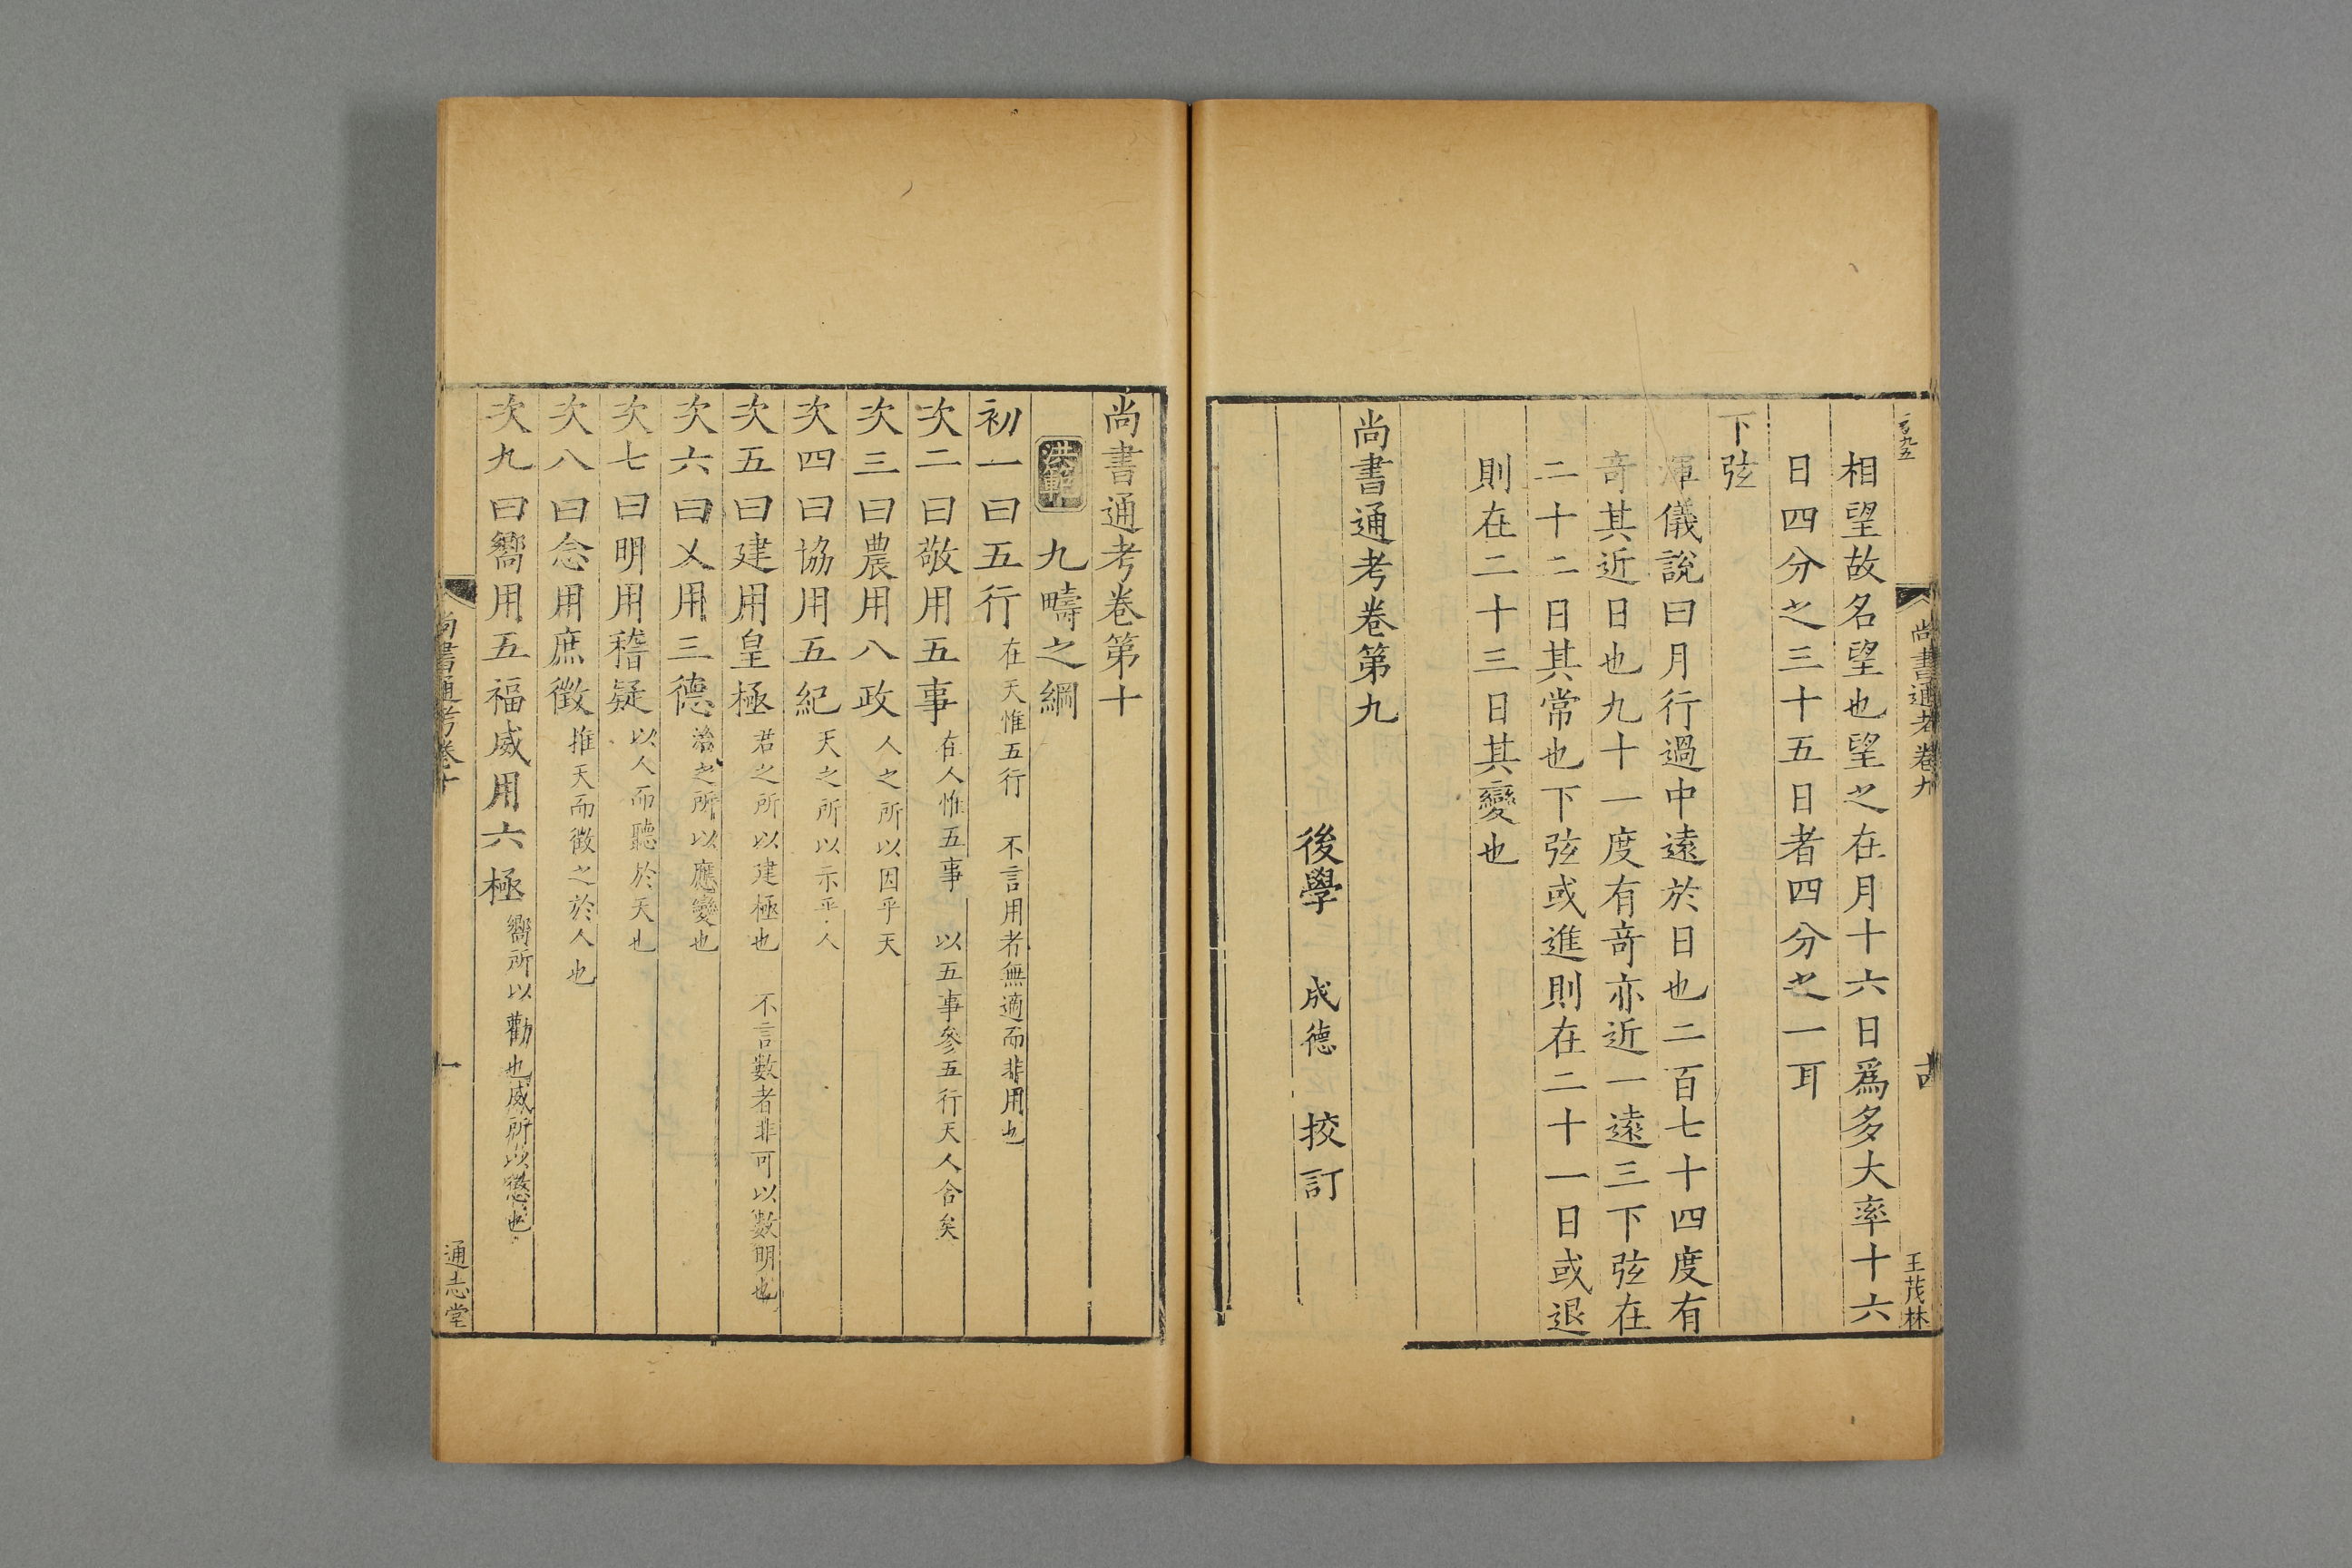 相望故名望也望之在月十六日爲多大率十六
日四分之三十五日者四分之一耳
下弦
渾儀説曰月行過中遠於日也二百七十四度有
竒其近日也九十一度有竒亦近一遠三下弦在
二十二日其常也下弦或進則在二十一日或退
則在二十三日其變也
尚書通考卷第九
後學 成德 挍訂
尚書通考卷九
王茂林
尚書通考卷第十
洪範 九疇之綱
初一曰五行 在天惟五行 不言用者無適而非用也
次二曰敬用五事 在人惟五事 以五事參五行天人合矣
次三曰農用八政 人之所以因乎天
次四曰協用五紀 天之所以示乎人
次五曰建用皇極 君之所以建極也 不言數者非可以數明也
次六曰乂用三德 治之所以應變也
次七曰明用稽疑 以人而聽於天也
次八曰念用庶徵 推天而徵之於人也
次九曰嚮用五福威用六極 嚮所以勸也威所以懲也
尚書通考卷十
一
通志堂